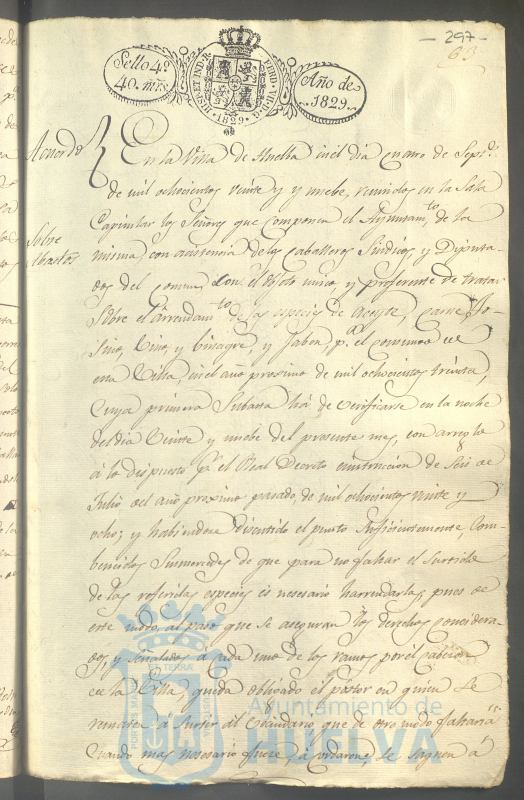 - 297 -
63
Sello 4º
40. mrs.
HISP. ET IND. R. FERD. VII. D. G. 1829.
Año de
1829.
Acuerdo
Sobre
Abastos
En la Villa de Huelba in el dia Cuatro de Septe.
de mil ochocientos veinte y y nuebe, reunidos en la Sala
Capitular los Señores que componen el Ayuntamto. de la
misma, con asistencia de los Caballeros Sindicos, y Diputa-
dos del comun, con el objeto unico y preferente de tratar
Sobre el Arrendamto. de las especies de Aceyte, Carne, To-
sino, Vino, y Vinagre, y Jabon, pa. el consumo de
esta Villa, in el año proximo de mil ochocientos treinta,
Cuya primera Subasta há de verificarse en la noche
del dia Veinte y nuebe del presente mes, con arreglo
á lo dispuesto pr. el Real Decreto instruccion de Seis de
Julio del año proximo pasado, de mil ochocientos veinte y
ocho; y habiendose discutido el punto suficientemente Com-
bencidos Sus mercedes de que para no faltar el surtido
de las referidas especies es necesario harrendarlas, pues de
este modo, al paso que se aseguran los derechos considera-
dos, y señalados á cada uno de los ramos por el cabezon
de la Villa, queda obligado el postor en quien se
rematen á surtir al Vecindario que de otro modo faltaria
Cuando mas necesario fuese, acordaron: Se saquen á
Ayuntamiento de
HUELVA